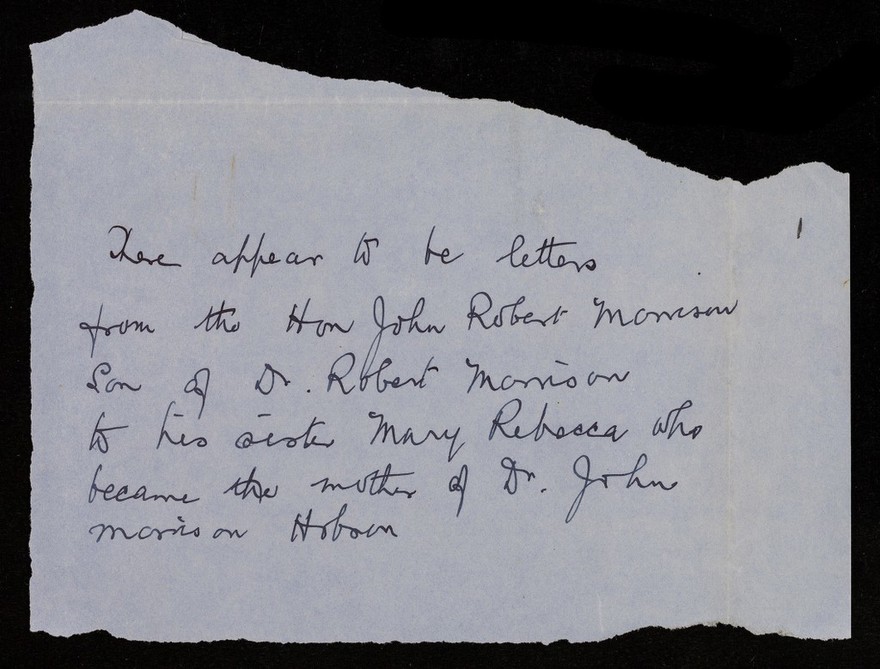 1
There appear to be letters
from the Hon John Robert Morrison
Son of Dr. Robert Morrison
to his sister Mary Rebecca who
became the mother of Dr. John
Morrison Hobson